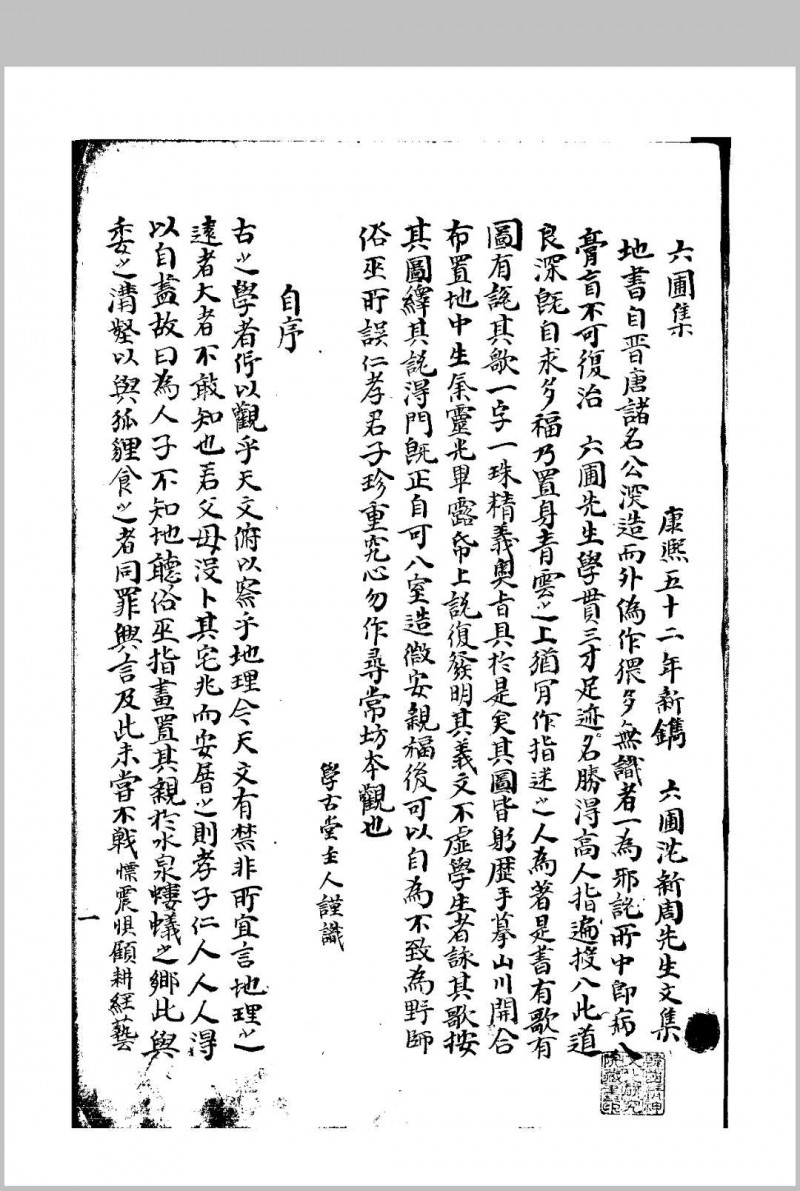 六圃集
康熙五十二年新鐫　六圃沈新周先生文集
地書自晉唐諸名公深造而外偽作猥多無識者一為邪說所中即病入
膏盲不可復治　六圃先生學貫三才足迹名勝得高人指遍授入此道
良深既自求多福乃置身青雲之上猶肎作指迷之人為著是書有歌有
圖有說其歌一字一珠精義奧旨具於是矣其圖皆躬歷手摹山川開合
布置地中生氣靈光畢露帋上說復發明其義文不虛學生者詠其歌按
其圖繹其說得門既正自可入室造微安親福後可以自為不致為野師
俗巫所誤仁孝君子珍重究心勿作尋常坊本觀也
學古堂主人謹識
自序
古之學者仰以觀乎天文俯以察乎地理今天文有禁非所宜言地理之
遠者大者不敢知也若父母沒卜其宅兆而安厝之則孝子仁人人人得
以自盡故曰為人子不知地聽俗巫指畫置其親於水泉螻蟻之鄉此與
委之溝壑以與狐貍食之者同罪興言及此未嘗不戰慄震惧顧耕經藝
一